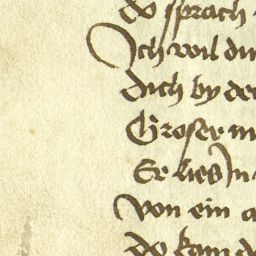 do sprach
Ich wil di
dich by de
Groser
Er lies In
von ein
do kam d